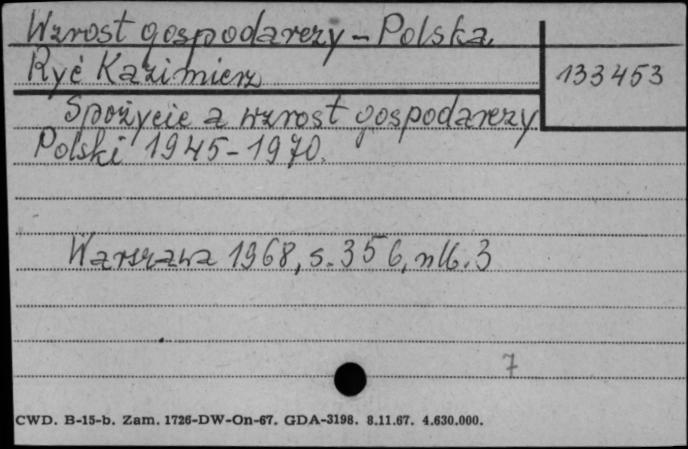 Wzrost gospodarczy - Polska.
Ryć Kazimierz
133453
Spożycie a wzrost gospodarczy
Polski 1945-1970.
Warszawa 1968, s. 356, nlb. 3
7
CWD. B-15-b. Zam. 1726-DW-On-67. GDA-3198. 8.11.67. 4.630.000.